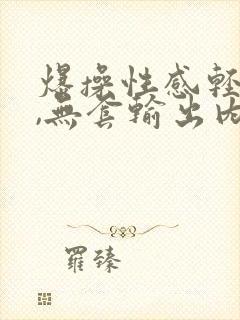 爆操性感輕
,無套輸出内
羅臻